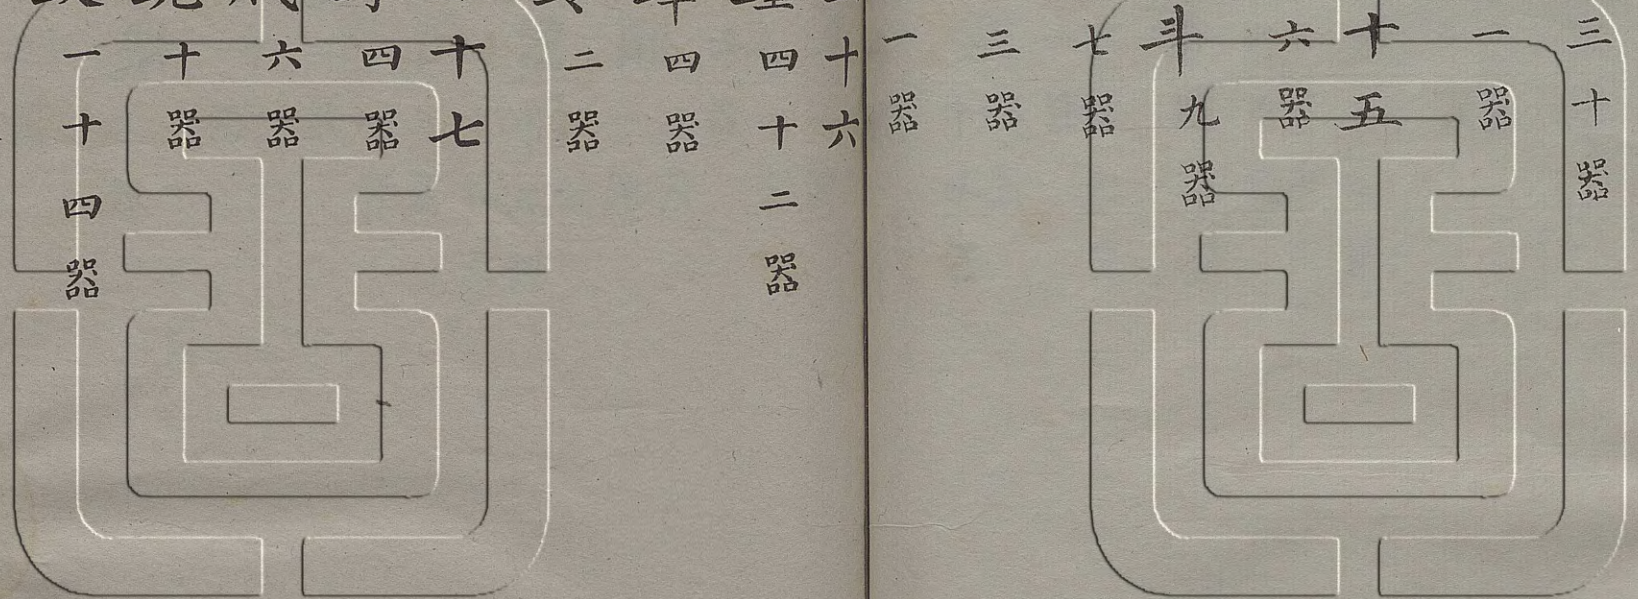 三十器
一器
十五
六器
斗九器
七器
三器
一器
十六
四十二器
四器
二器
十七
四器
六器
十器
一十四器